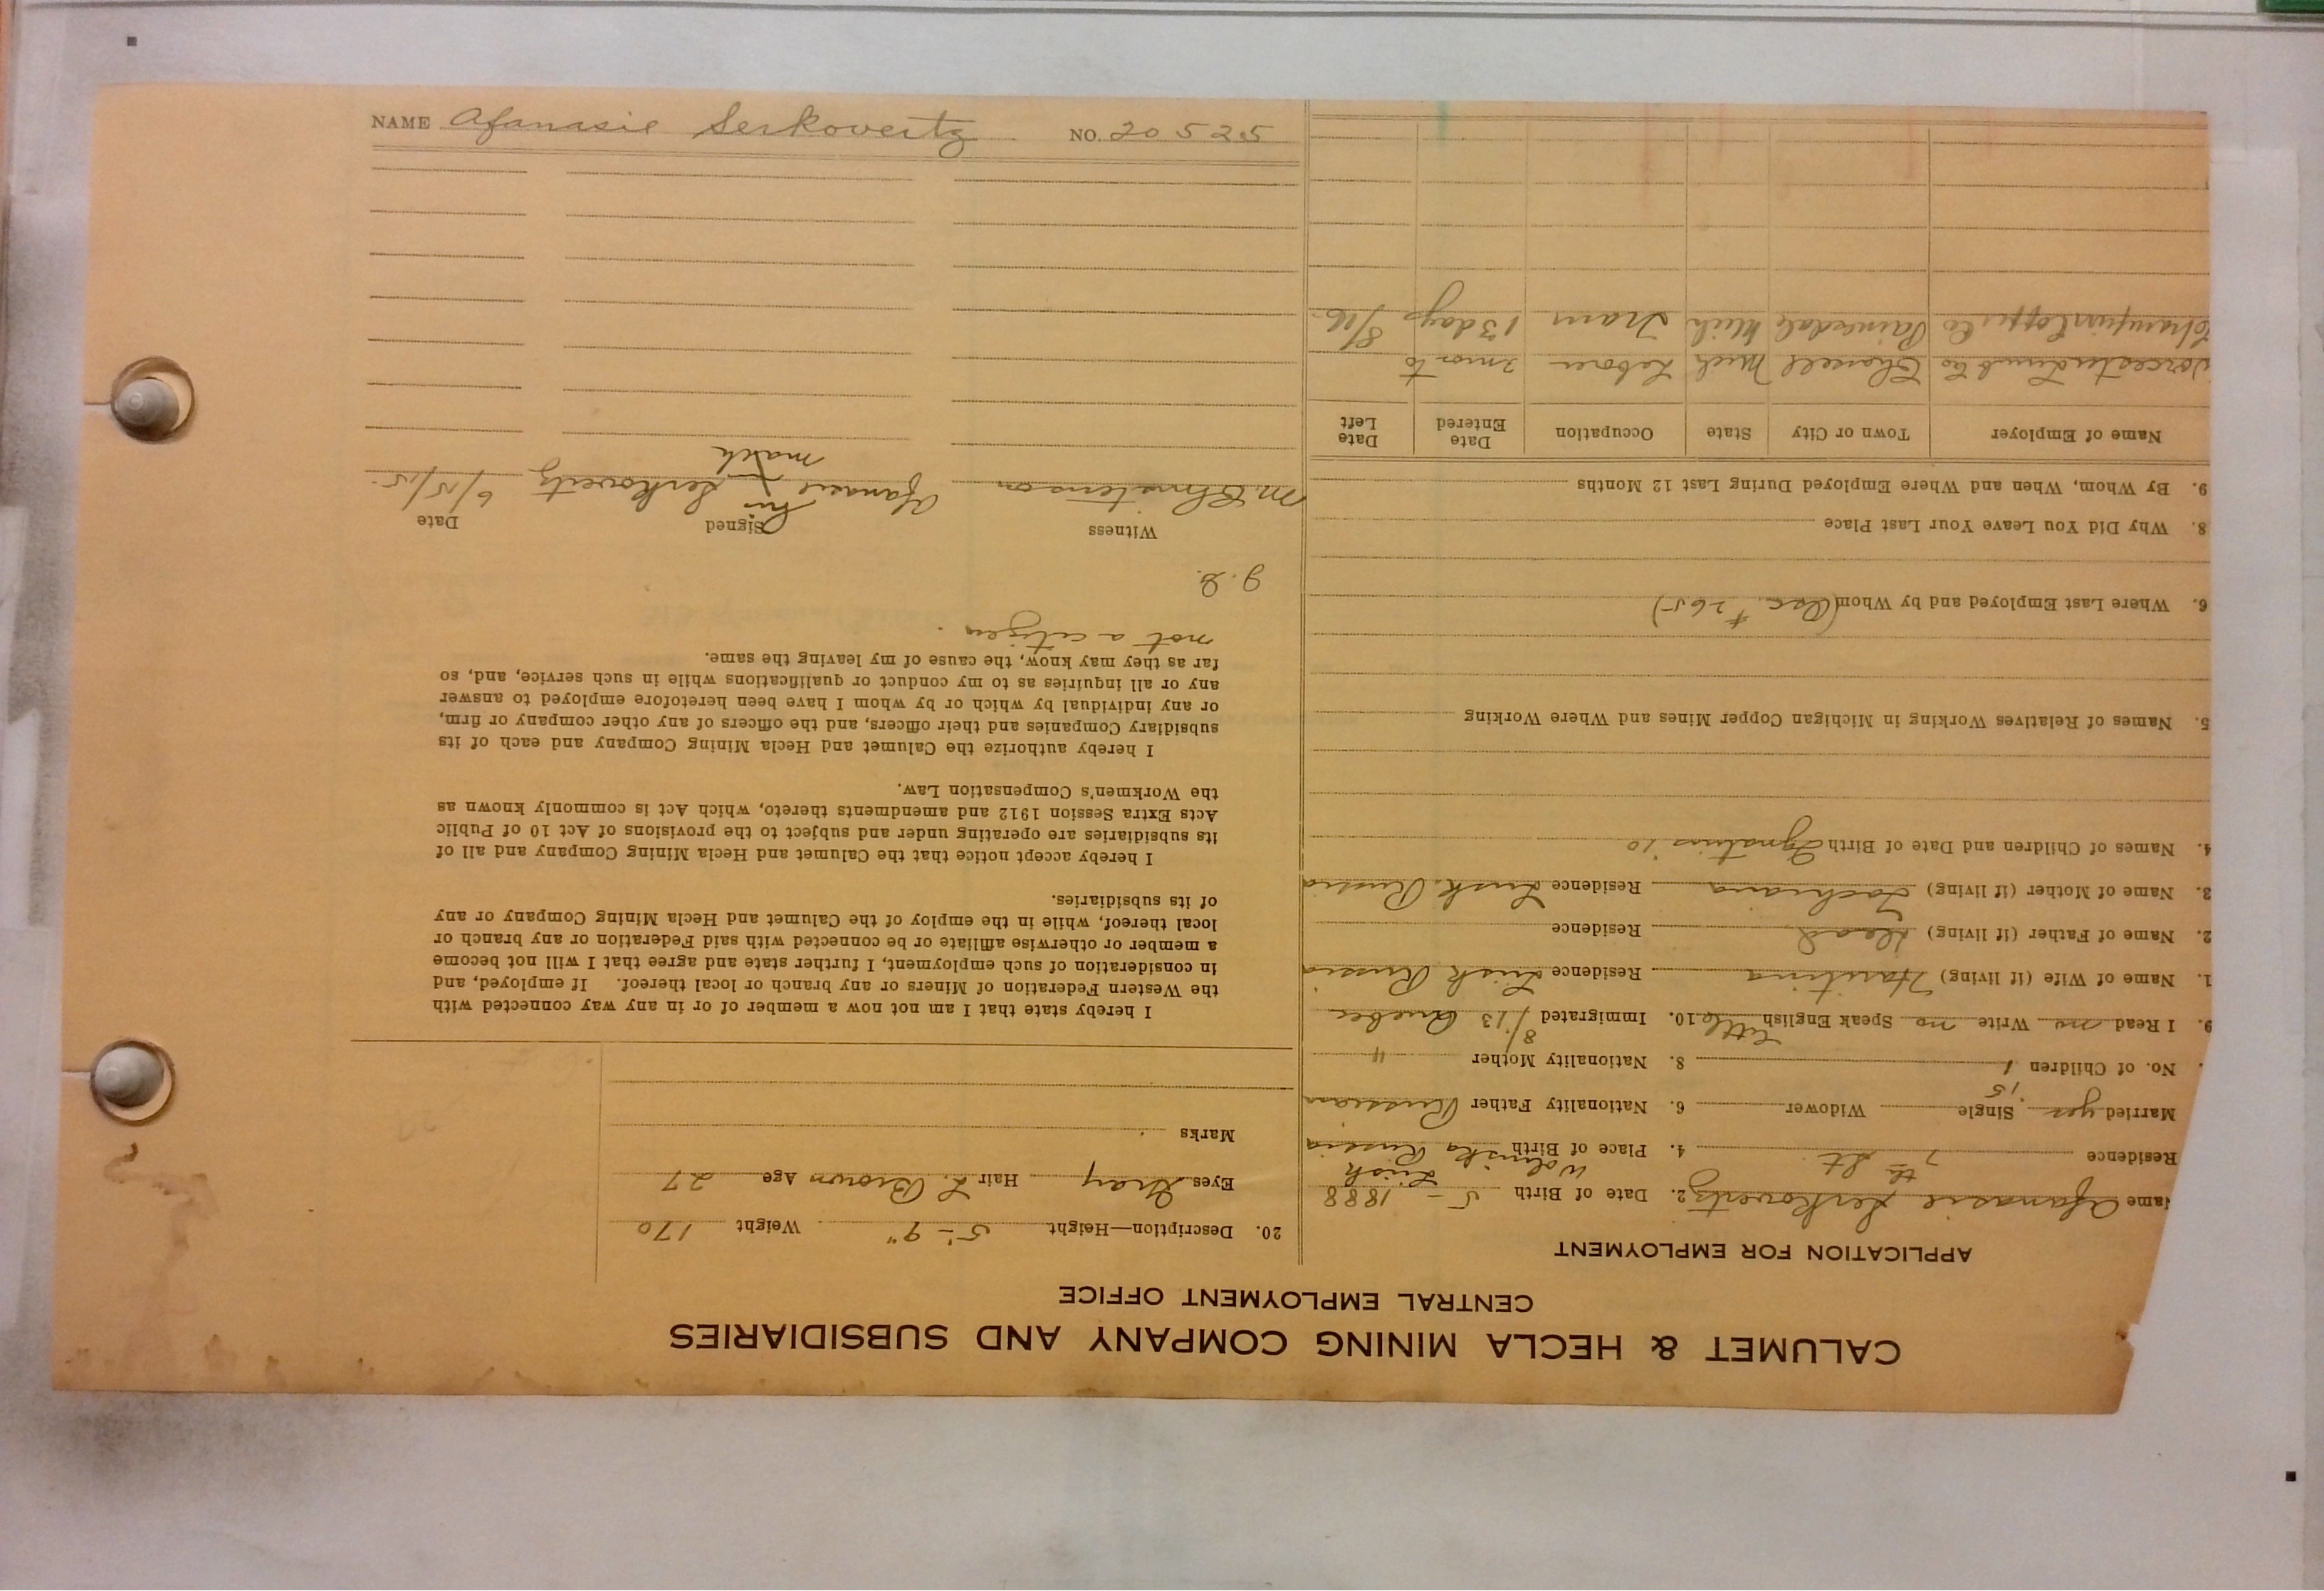 NAME Afanasie Serkovertz NO. 20525
CALUMET & HECLA MINING COMPANY AND SUBSIDIARIES
CENTRAL EMPLOYMENT OFFICE
APPLICATION FOR EMPLOYMENT
Name Afanasie Serkovertz 2. Date of Birth 5 - 1888
Residence 7th St. 4. Place of Birth Russia
Married yes '15 Single Widower 6. Nationality Father Russian
No. of Children 1 8. Nationality Mother "
9. I Read no Write no Speak English Little 10. Immigrated 8/13 Quebec
1. Name of Wife (if living) Residence Lusk Russia
2. Name of Father (if living) Dead Residence
3. Name of Mother (if living) Residence Lusk. Russia
4. Names of Children and Date of Birth Ignatius '10
5. Names of Relatives Working in Michigan Copper Mines and Where Working
6. Where Last Employed and by Whom (Osc. # 265)
8. Why Did You Leave Your Last Place
9. By Whom, When and Where Employed During Last 12 Months
Name of Employer Town or City State Occupation Date Entered Date Left
Worcester Lumb Co Chassell Mich Laborer 2 mos to
Champion Copper Co Painesdale Mich Tram 13 days 8/16
20. Description—Height 5'- 9" Weight 170
Eyes Gray Hair L. Brown Age 27
Marks
I hereby state that I am not now a member of or in any way connected with
the Western Federation of Miners or any branch or local thereof. If employed, and
in consideration of such employment, I further state and agree that I will not become
a member or otherwise affiliate or be connected with said Federation or any branch or
local thereof, while in the employ of the Calumet and Hecla Mining Company or any
of its subsidiaries.
I hereby accept notice that the Calumet and Hecla Mining Company and all of
its subsidiaries are operating under and subject to the provisions of Act 10 of Public
Acts Extra Session 1912 and amendments thereto, which Act is commonly known as
the Workmen's Compensation Law.
I hereby authorize the Calumet and Hecla Mining Company and each of its
subsidiary Companies and their officers, and the officers of any other company or firm,
or any individual by which or by whom I have been heretofore employed to answer
any or all inquiries as to my conduct or qualifications while in such service, and, so
far as they may know, the cause of my leaving the same.
not a citizen.
Witness Signed Date
M. Christenson Afanasie his X mark Serkovertz 6/15/15.